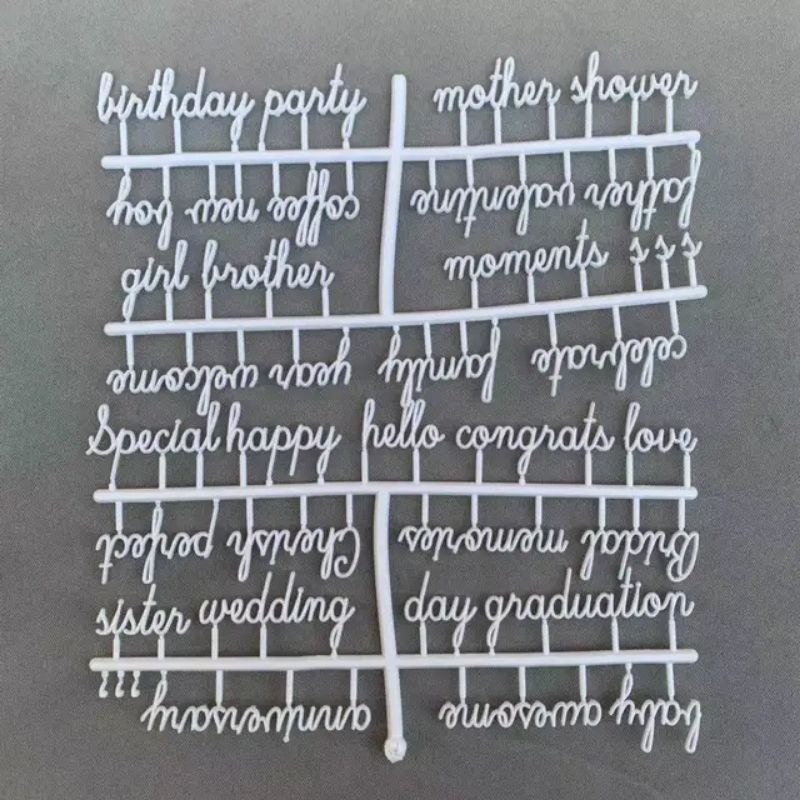 birthday party mother shower
father valentine coffee new boy
girl brother moments s s s
celebrate family year welcome
Special happy hello congrats love
Bridal memories Cherish perfect
sister wedding day graduation
baby awesome anniversary